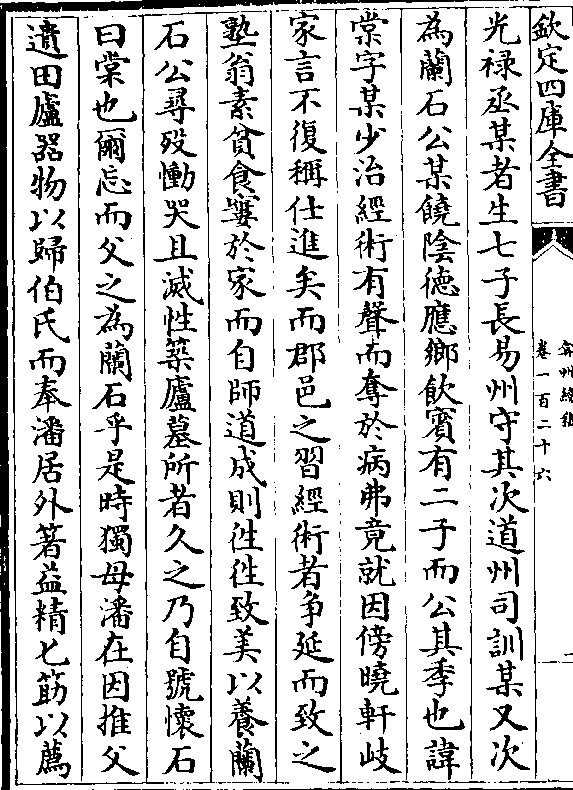 欽定四庫全書
弇州續稿
卷一百二十六
光禄丞某者生七子長易州守其次道州司訓某又次
為蘭石公某饒陰德應鄉飲賓有二子而公其季也諱
棠字某少治經術有聲而奪於病弗竟就因傍曉軒岐
家言不復稱仕進矣而郡邑之習經術者争延而致之
塾翁素貧食寠於家而自師道成則徃徃致美以養蘭
石公尋殁慟哭且滅性築廬墓所者久之乃自號懷石
曰棠也爾忘而父之為蘭石乎是時獨母潘在因推父
遺田廬器物以歸伯氏而奉潘居外著益精匕筯以薦